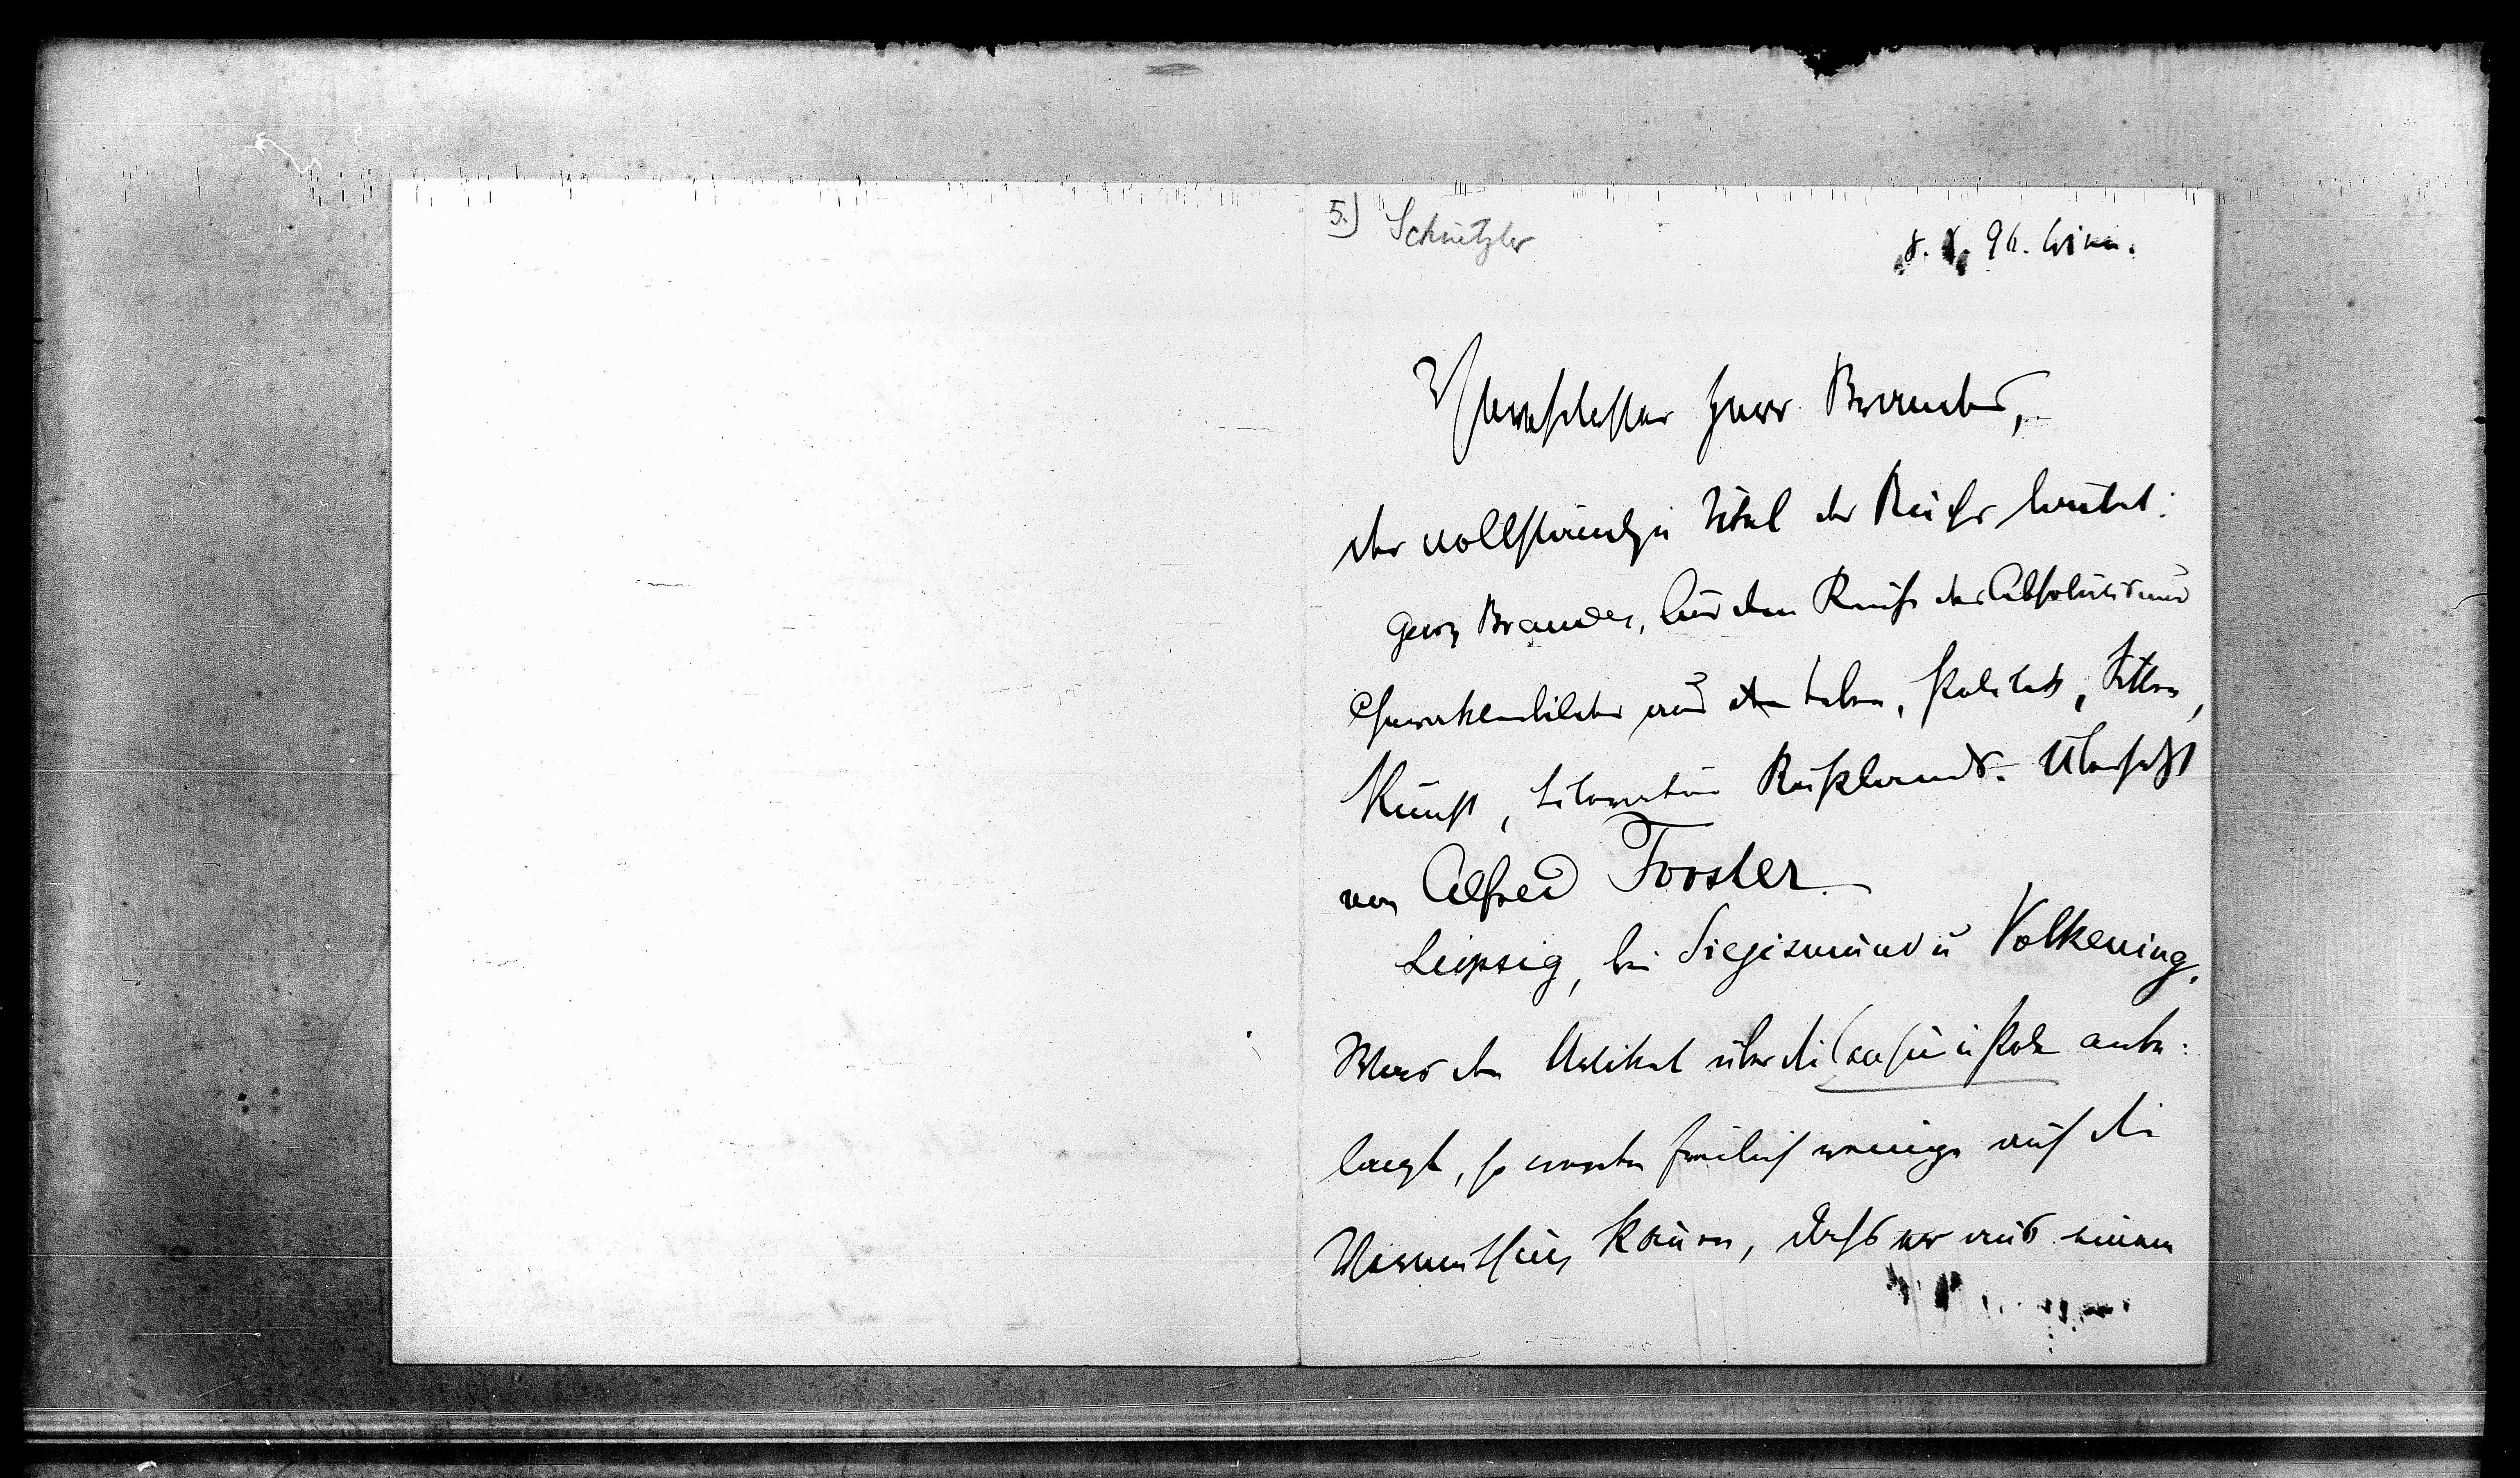 5.) Schnitzler
8. 96. Wien.
Verehrtester Herr Brandes,
der vollständige Titel des Buchs lautet:
Georg Brandes, Aus dem Reiche des Absolutismus
Charakterbilder aus dem Leben, Politik, Sitten,
Kunst, Literatur Rußlands. Übersetzt
von Alfred Forster.
Leipzig, bei Siegismund u Volkening.
Was den Artikel über die anbe:
langt, so werden freilich wenige auf die
Vermuthung kommen, daß er aus einem